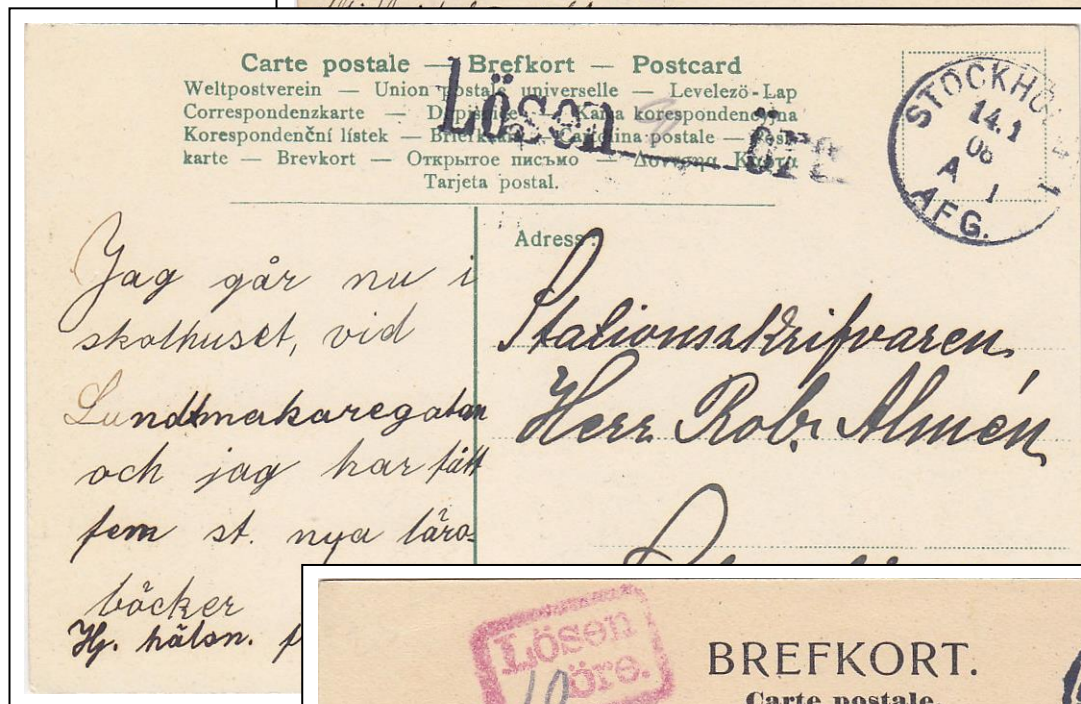 Carte postale — Brefkort — Postcard
Weltpostverein — Union postale universelle — Levelező-Lap
Correspondenzkarte — Karta korespondencyjna
Korespondenční lístek — postale —
karte — Brevkort — Открытое письмо —
Tarjeta postal.
Lösen öre
STOCKHOLM 1
14.1
06
A 1
AFG.
Jag går nu i
skolhuset, vid
Lundtmakaregatan
och jag har fått
fem st. nya läro-
böcker
Hj. hälsn.
Adress:
Stationsskrifvaren
Herr Rob. Almén
Lösen
10 öre.
BREFKORT.
Carte postale.